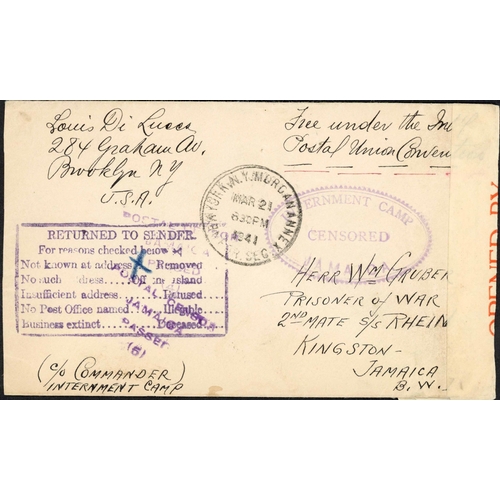 Louis Di Lucca
284 Graham Av.
Brooklyn NY
U.S.A.
Free under the
Postal Union
NEW YORK, N.Y. MORGAN ANNEX
MAR 21
630PM
1941
CENSORED
JAMAICA
RETURNED TO SENDER.
For reasons checked below
Not known at address Removed
No such address
Insufficient address Refused
No Post Office named
Business extinct Deceased
POSTAL CENSOR
JAMAICA
PASSED
(6)
HERR WM GRUBER
PRISONER OF WAR
2ND MATE S/S RHEIN
KINGSTON-
JAMAICA
B.W.
(C/O COMMANDER)
INTERNMENT CAMP
OPENED BY